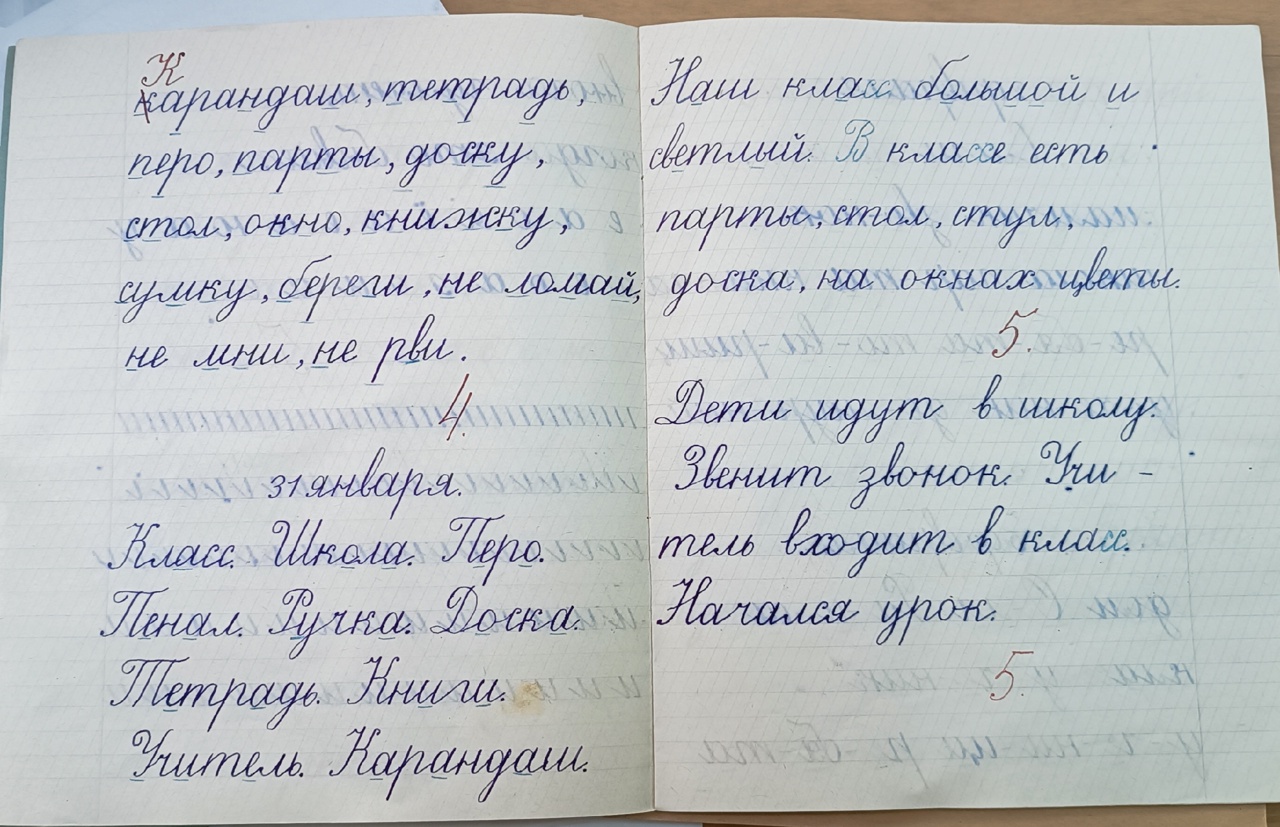 К
карандаш, тетрадь,
перо, парты, доску,
стол, окно, книжку,
сумку, береги, не ломай,
не мни, не рви.
4.
31 января.
Класс. Школа. Перо.
Пенал. Ручка. Доска.
Тетрадь. Книги.
Учитель. Карандаш.
Наш класс большой и
светлый. В классе есть
парты, стол, стул,
доска, на окнах цветы.
5.
Дети идут в школу.
Звенит звонок. Учи -
тель входит в класс.
Начался урок.
5.